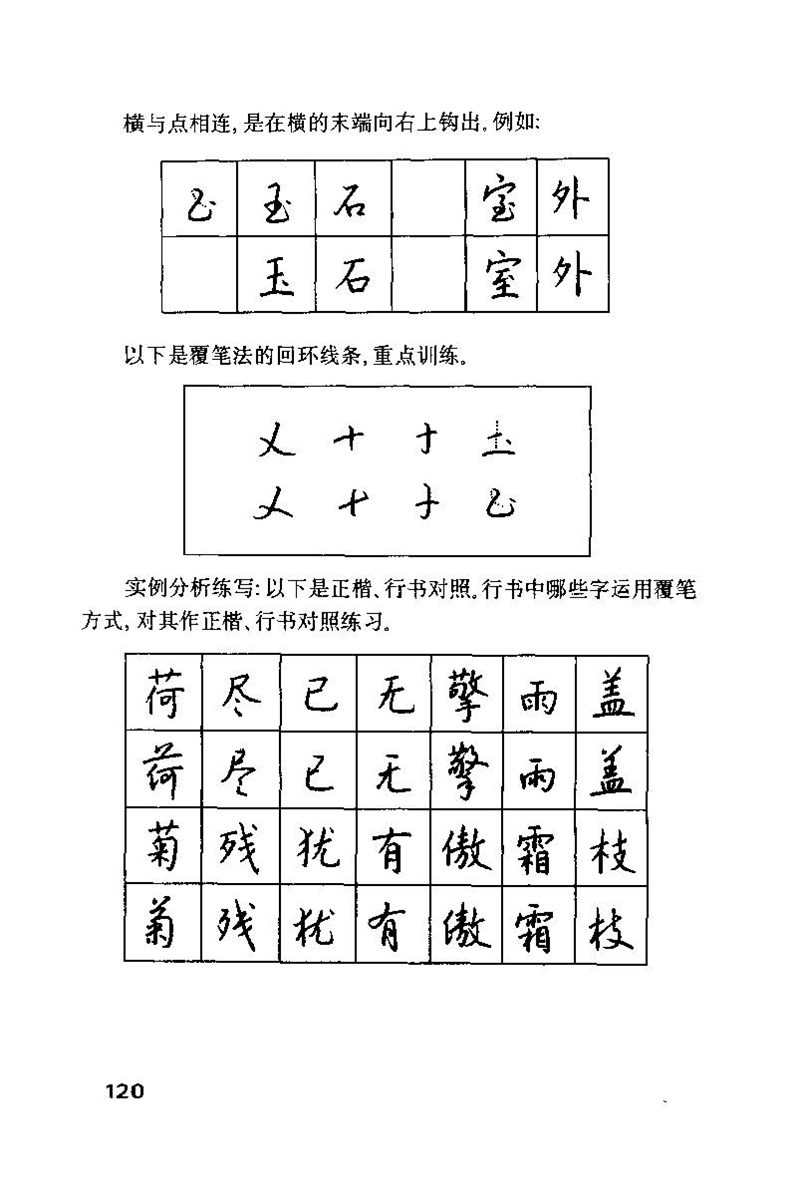 横与点相连,是在横的末端向右上钩出。例如:
玉石 室外
玉石 室外
以下是覆笔法的回环线条,重点训练。
乂 十 于
乂 十 于
实例分析练写:以下是正楷、行书对照。行书中哪些字运用覆笔
方式,对其作正楷、行书对照练习。
荷尽已无擎雨盖
荷尽已无擎雨盖
菊残犹有傲霜枝
菊残犹有傲霜枝
120